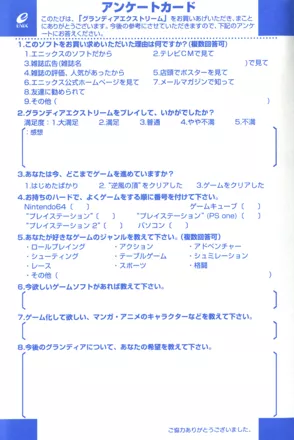 アンケートカード
ENIX
このたびは、「グランディアエクストリーム」をお買いあげいただき、まこと
にありがとうございます。今後の参考にさせていただきますので、下記のアンケ
ートにお答えください。
1.このソフトをお買い求めいただいた理由は何ですか?(複数回答可)
1.エニックスのソフトだから 2.テレビCMで見て
3.雑誌広告(雑誌名 )で見て
4.雑誌の評価、人気があったから 5.店頭でポスターを見て
6.エニックス公式ホームページを見て 7.メールマガジンで知って
8.友達に勧められて
9.その他( )
2.グランディアエクストリームをプレイして、いかがでしたか?
満足度:1.大満足 2.満足 3.普通 4.やや不満 5.不満
:感想
3.あなたは今、どこまでゲームを進めていますか?
1.はじめたばかり 2."逆風の頂"をクリアした 3.ゲームをクリアした
4.お持ちのハードで、よくゲームをする順に番号を付けて下さい。
Nintendo64( ) ゲームキューブ( )
"プレイステーション"( ) "プレイステーション"(PS one)( )
"プレイステーション 2"( ) パソコン( )
5.あなたが好きなゲームのジャンルを教えて下さい。(複数回答可)
・ロールプレイング ・アクション ・アドベンチャー
・シューティング ・テーブルゲーム ・シュミレーション
・レース ・スポーツ ・格闘
・その他( )
6.今欲しいゲームソフトがあれば教えて下さい。
7.ゲーム化して欲しい、マンガ・アニメのキャラクターなどを教えて下さい。
8.今後のグランディアについて、あなたの希望を教えて下さい。
ご協力ありがとうございました。